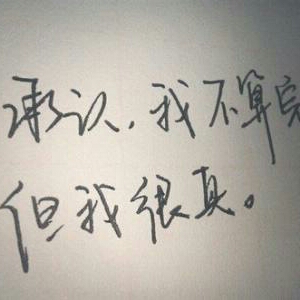 承认，我不算完
但我很真。